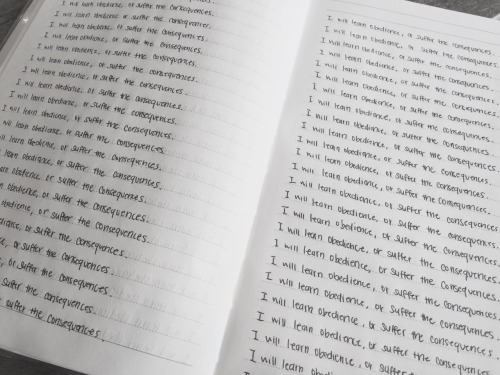 I will learn obedience, or suffer the consequences.
I will learn obedience, or suffer the consequences.
I will learn obedience, or suffer the consequences.
I will learn obedience, or suffer the consequences.
I will learn obedience, or suffer the consequences.
I will learn obedience, or suffer the consequences.
I will learn obedience, or suffer the consequences.
I will learn obedience, or suffer the consequences.
I will learn obedience, or suffer the consequences.
I will learn obedience, or suffer the consequences.
will learn obedience, or suffer the consequences.
learn obedience, or suffer the consequences.
learn obedience, or suffer the consequences.
obedience, or suffer the consequences.
obedience, or suffer the consequences.
obedience, or suffer the consequences.
or suffer the consequences.
or suffer the consequences.
or suffer the consequences.
suffer the consequences.
suffer the consequences.
I will learn obedience, or suffer the consequences.
I will learn obedience, or suffer the consequences.
I will learn obedience, or suffer the consequences.
I will learn obedience, or suffer the consequences.
I will learn obedience, or suffer the consequences.
I will learn obedience, or suffer the consequences.
I will learn obedience, or suffer the consequences.
I will learn obedience, or suffer the consequences.
I will learn obedience, or suffer the consequences.
I will learn obedience, or suffer the consequences.
I will learn obedience, or suffer the consequences.
I will learn obedience, or suffer the consequences.
I will learn obedience, or suffer the consequences.
I will learn obedience, or suffer the consequences
I will learn obedience, or suffer the consequences
I will learn obedience, or suffer the consequences
I will learn obedience, or suffer the consequences
I will learn obedience, or suffer the consequences
I will learn obedience, or suffer the
I will learn obedience, or suffer the
I will learn obedience, or suffer the
I will learn obedience, or suffer the
I will learn obedience, or suffer
I will learn obedience